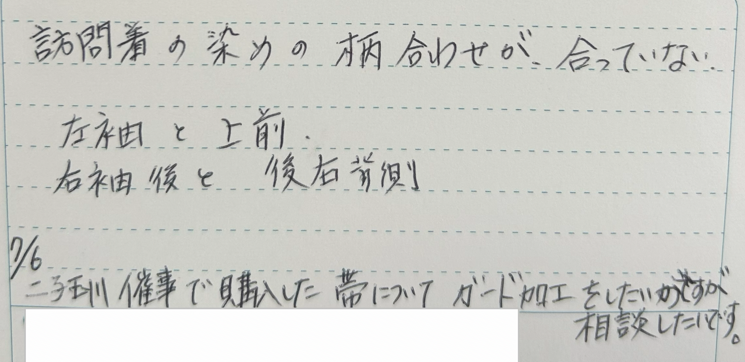 訪問着の染めの柄合わせが、合っていない。
左袖と上前.
右袖後と 後右背側
7/6
二子玉川催事で購入した帯について ガード加工をしたいのですが
相談したいです。